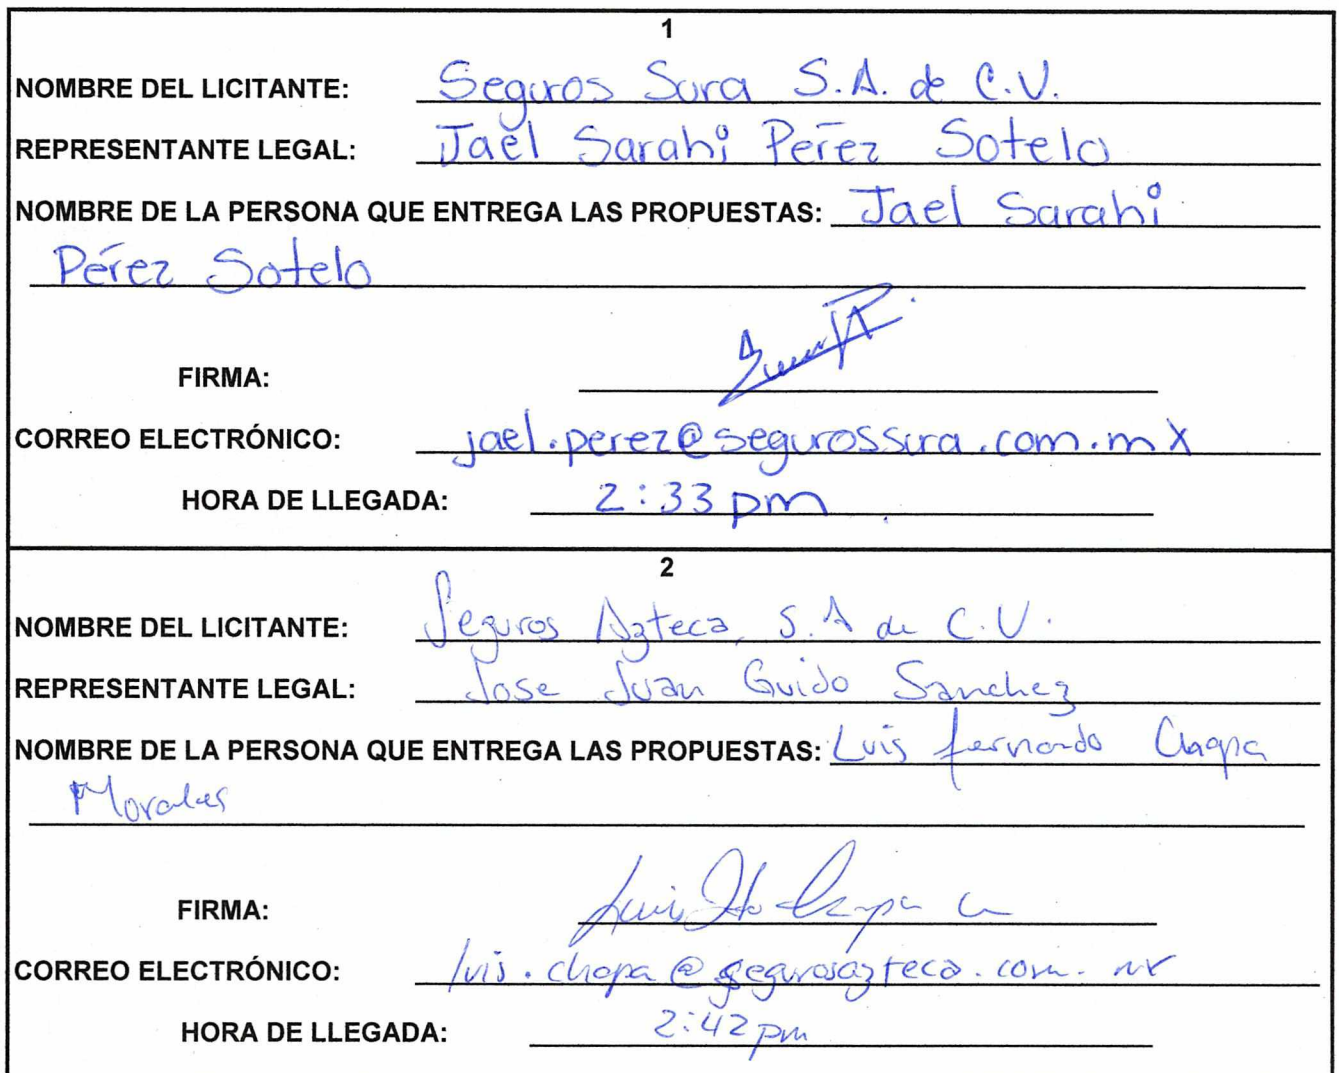 1
NOMBRE DEL LICITANTE: Seguros Sura S.A. de C.V.
REPRESENTANTE LEGAL: Jael Sarahi Pérez Sotelo
NOMBRE DE LA PERSONA QUE ENTREGA LAS PROPUESTAS: Jael Sarahi
Pérez Sotelo
FIRMA:
CORREO ELECTRÓNICO: jael.perez@segurossura.com.mx
HORA DE LLEGADA: 2:33 pm
2
NOMBRE DEL LICITANTE: Seguros Azteca, S.A de C.V.
REPRESENTANTE LEGAL: Jose Juan Guido Sanchez
NOMBRE DE LA PERSONA QUE ENTREGA LAS PROPUESTAS: Luis fernando Chapa
Morales
FIRMA:
CORREO ELECTRÓNICO: luis.chapa@segurosazteca.com.mx
HORA DE LLEGADA: 2:42 pm